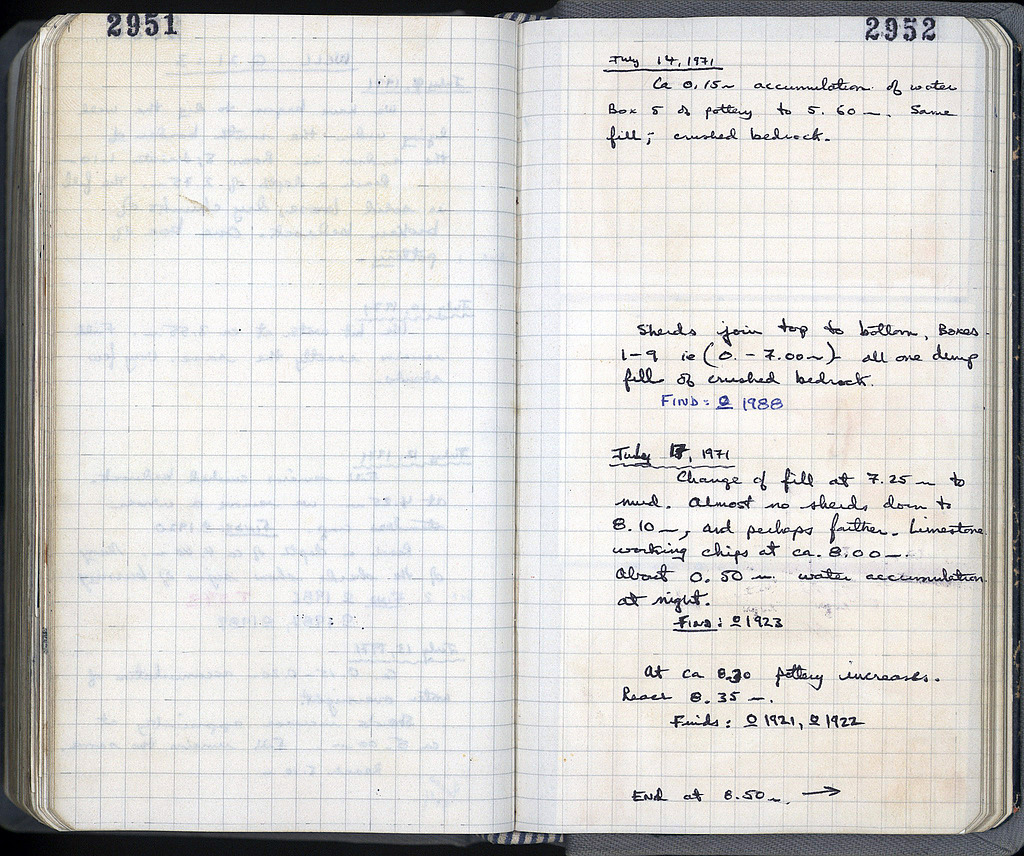 2951
2952
July 14, 1971
Ca 0.15m accumulation of water
Box 5 of pottery to 5.60 m. Same
fill; crushed bedrock.
Sherds join top to bottom, Boxes
1-9 ie (0.-7.00m) all one dump
fill of crushed bedrock.
FIND: O 1988
July , 1971
Change of fill at 7.25 m to
mud. Almost no sherds down to
8.10 m, and perhaps farther. Limestone
working chips at ca. 8.00 m.
About 0.50 m. water accumulation
at night.
FIND: O 1923
At ca 8.30 pottery increases.
Reach 8.35 m.
Finds: O 1921, O 1922
End at 8.50 m. →